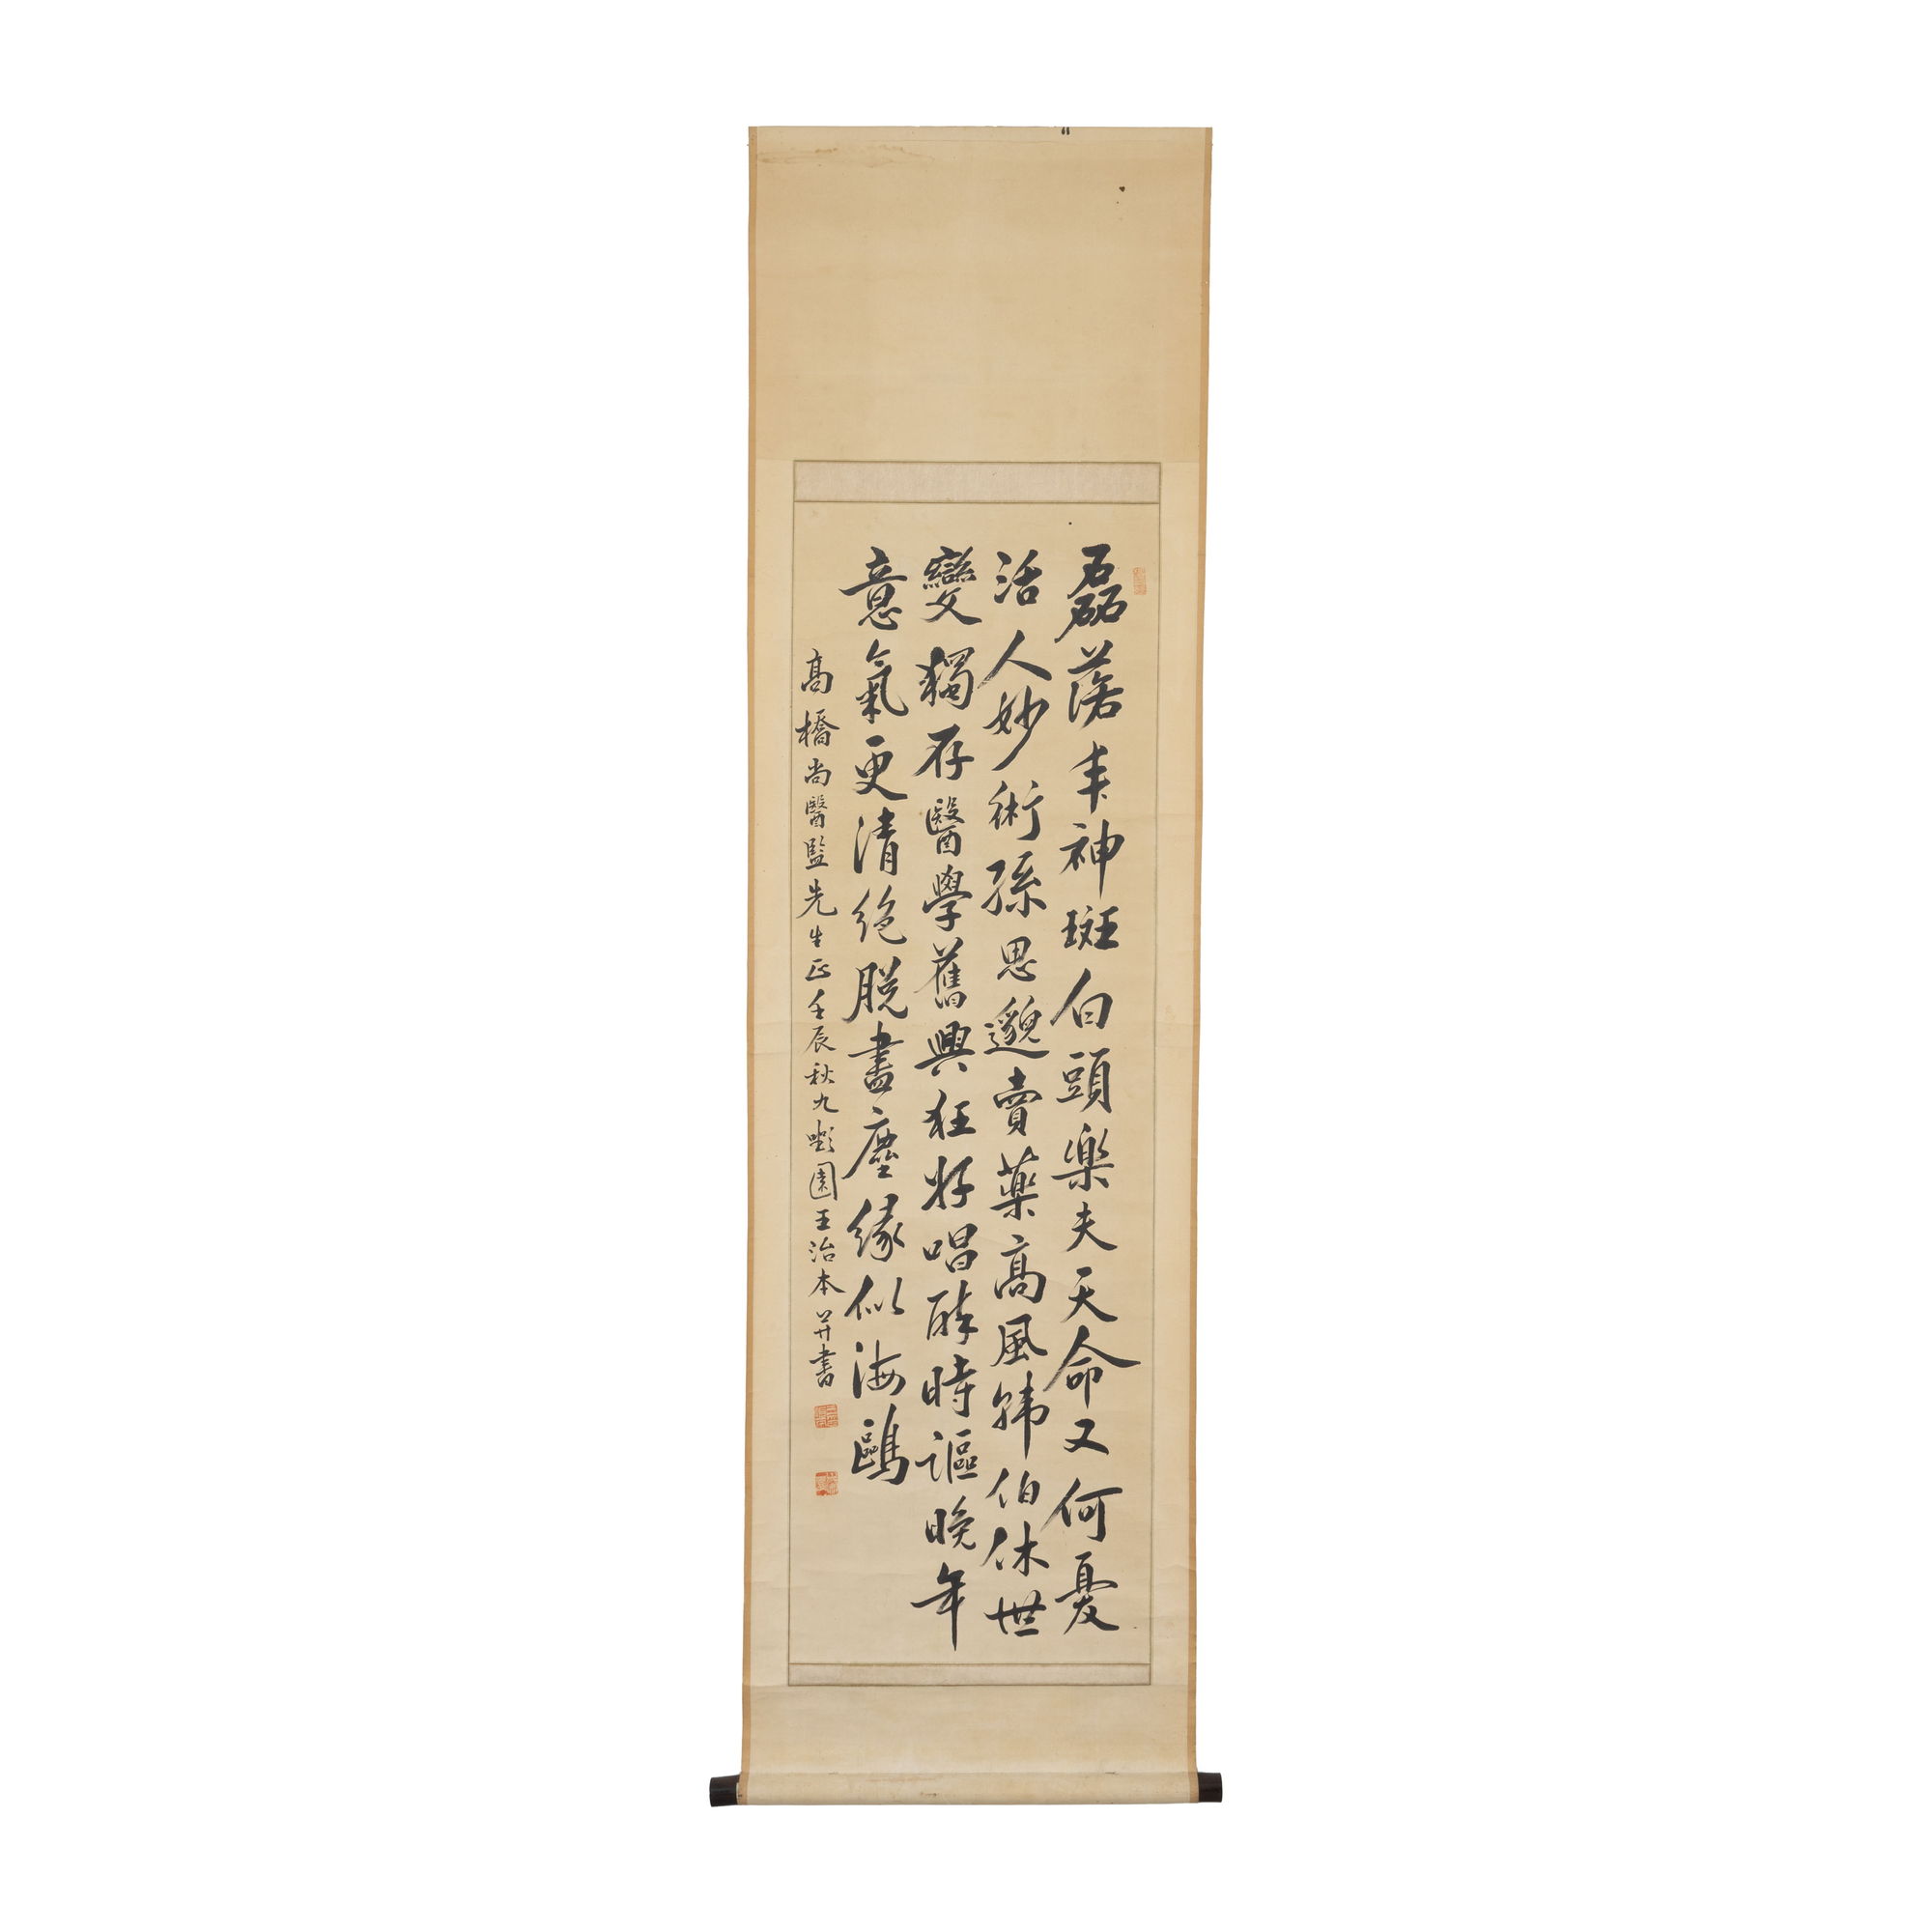 磊落丰神斑白頭樂夫天命又何憂
活人妙術孫思邈賣藥高風韓伯休世
變獨存醫學舊興狂好唱醉時謳晚年
意氣更清絶脱盡塵緣似海鷗
高橋尚醫監先生正壬辰秋九園王治本并書